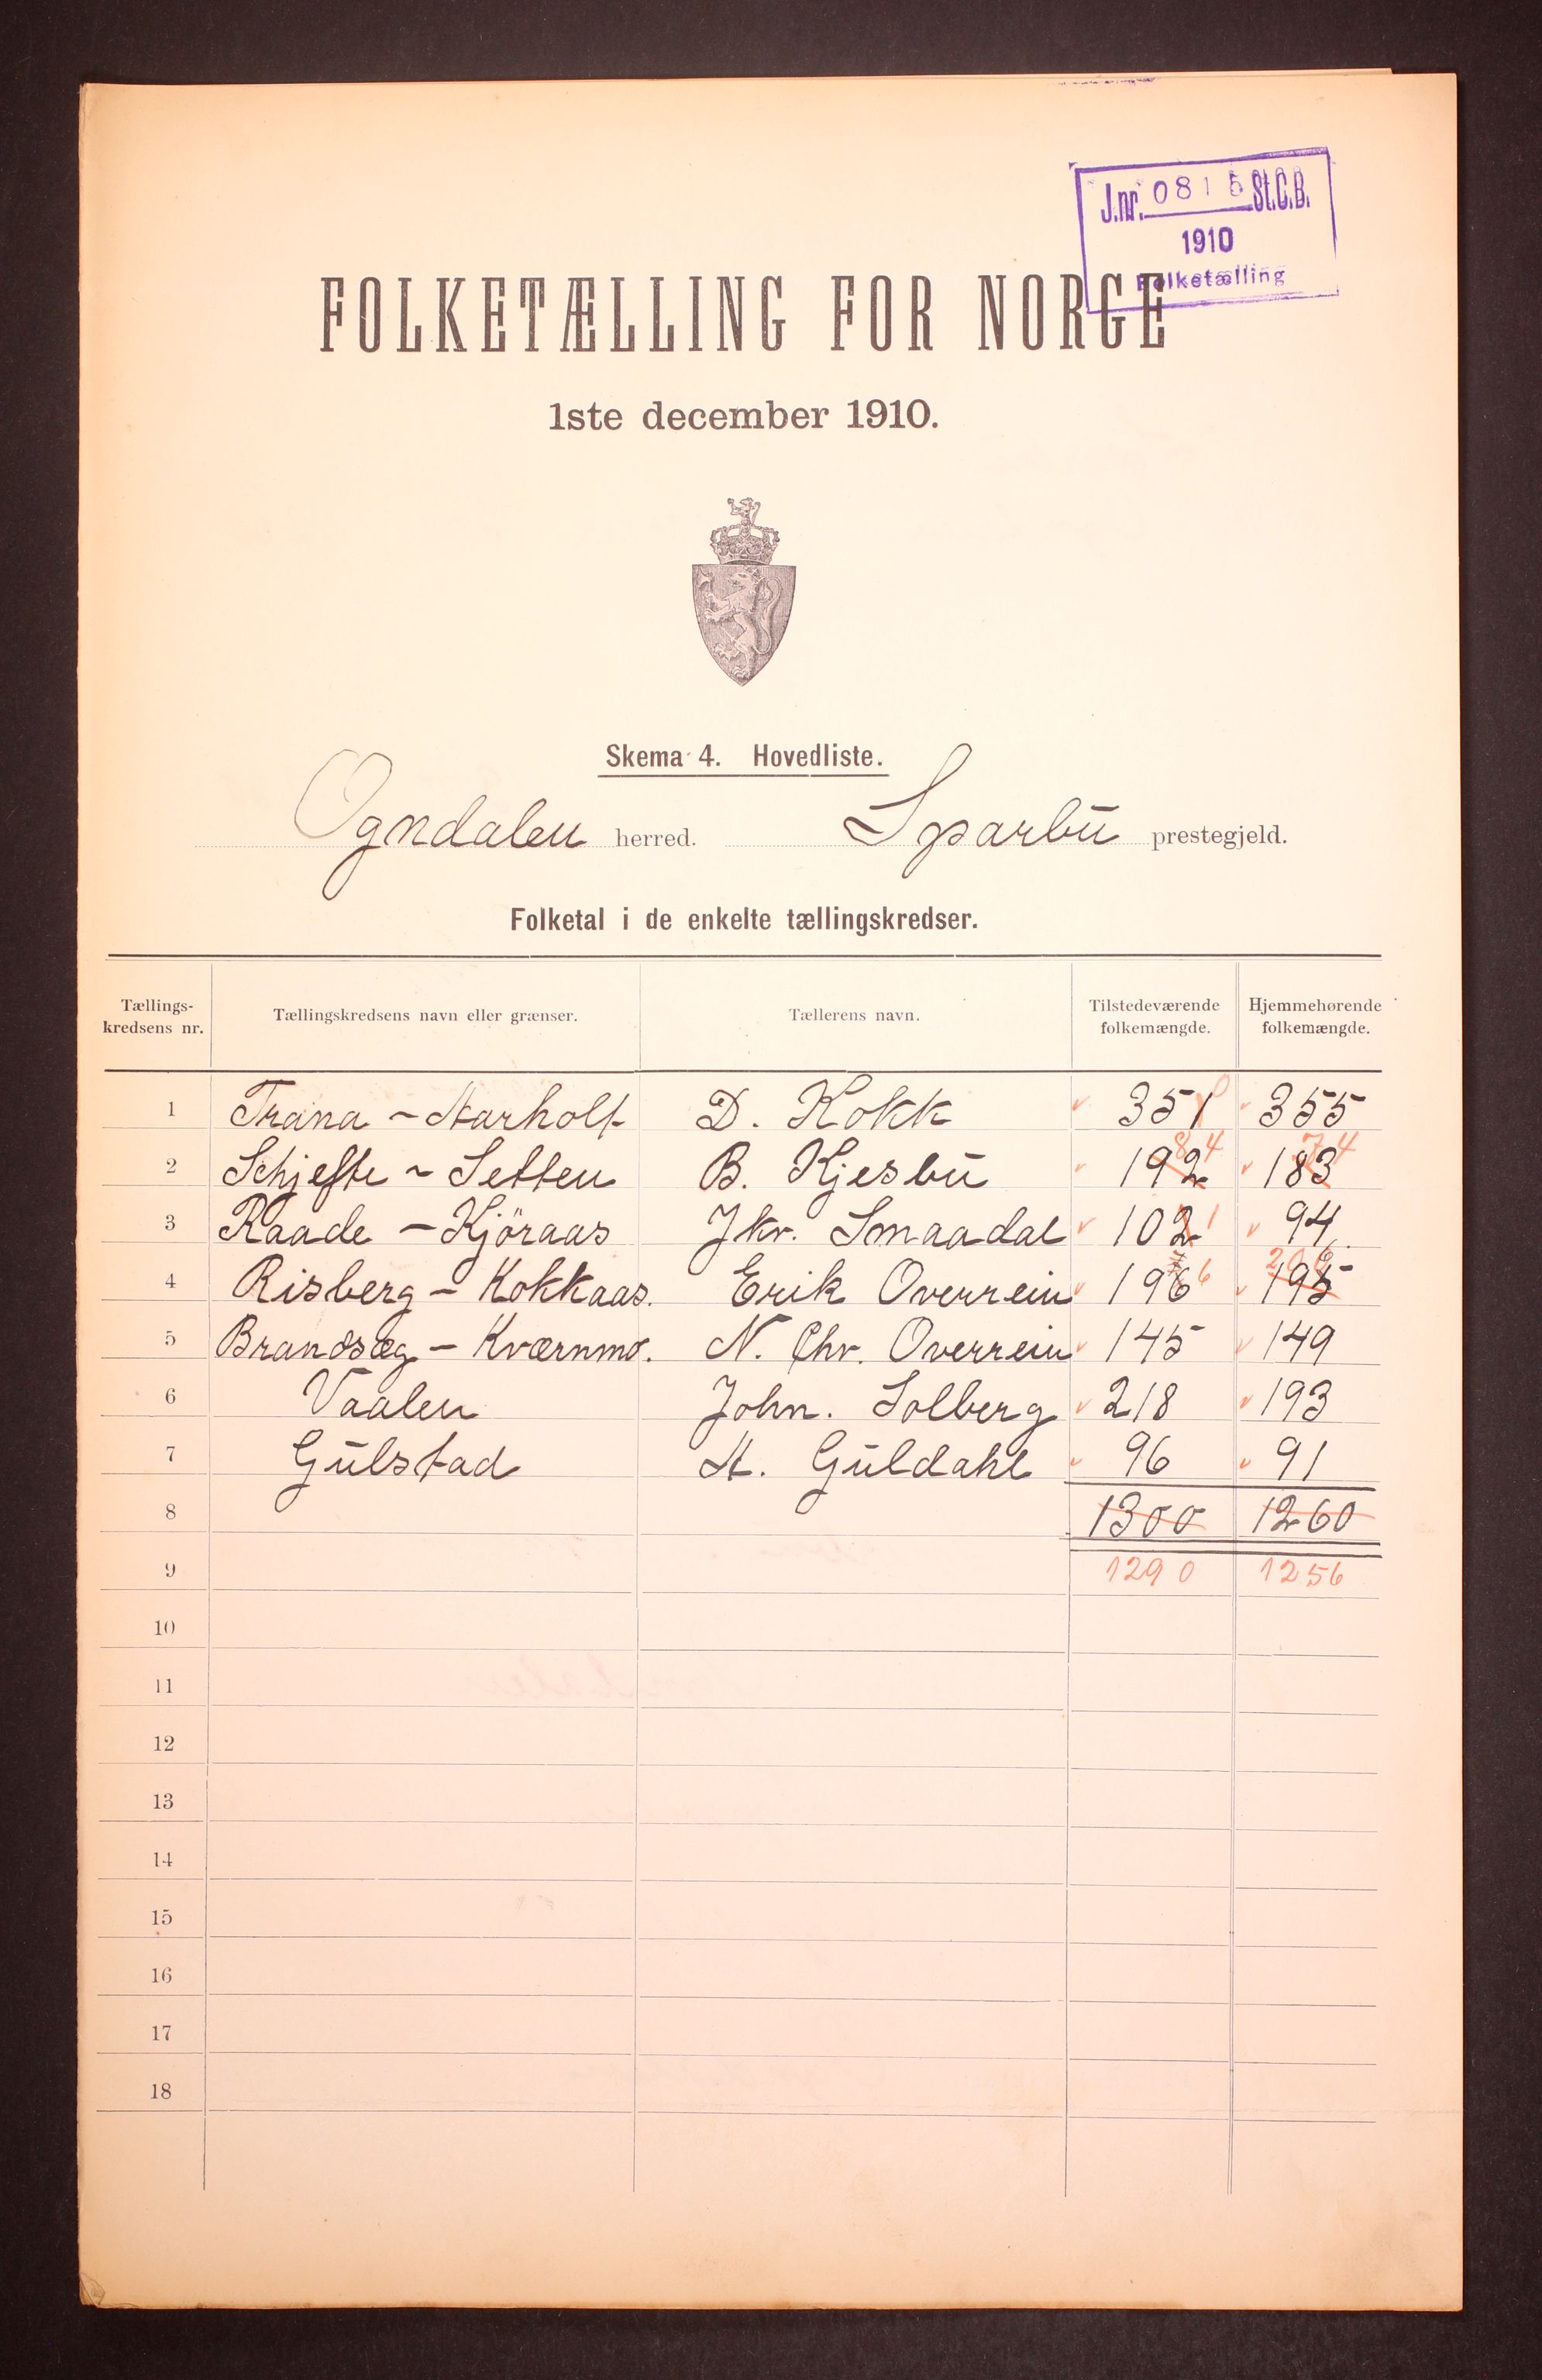 J.nr. 0815 St.C.B.
1910
Folketælling
FOLKETÆLLING FOR NORGE
1ste december 1910.
Skema 4. Hovedliste.
Ogndalen herred. Sparbu prestegjeld.
Folketal i de enkelte tællingskredser.
Tællings-kredsens nr. Tællingskredsens navn eller grænser. Tællerens navn. Tilstedeværende folkemængde. Hjemmehørende folkemængde.
1 Trana - Aarholt D. Kokk 351 0 355
2 Schjefte - Setten B. Kjesbu 192 84 183 74
3 Raade - Kjöraas J kr. Smaadal 102 1 94
4 Risberg - Kokkaas. Erik Overrein 196 6 195 200
5 Brandsæg - Kværnmo. N. Chr. Overrein 145 149
6 Vaalen John. Solberg 218 193
7 Gulstad A. Guldahl 96 91
8 1300 1260
9 1290 1256
10
11
12
13
14
15
16
17
18